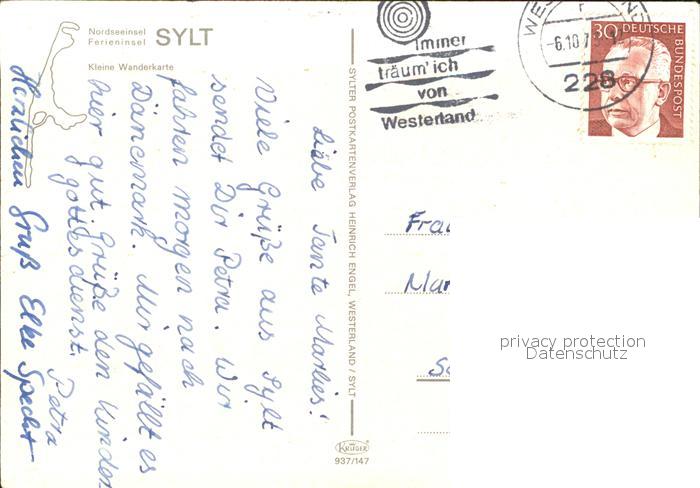 Nordseeinsel
Ferieninsel SYLT
Kleine Wanderkarte
immer
träum' ich
von
Westerland
-6.10.7
228
30 DEUTSCHE
BUNDESPOST
Liebe Tante Marlies!
Viele Grüße aus Sylt
sendet Dir Petra. Wir
fahren morgen nach
Dänemark. Mir gefällt es
hier gut. Grüße den Kinder
gottesdienst.
Petra
Herzlichen Gruß Elke Specht
SYLTER POSTKARTENVERLAG HEINRICH ENGEL, WESTERLAND / SYLT
KRÜGER
937/147
privacy protection
Datenschutz